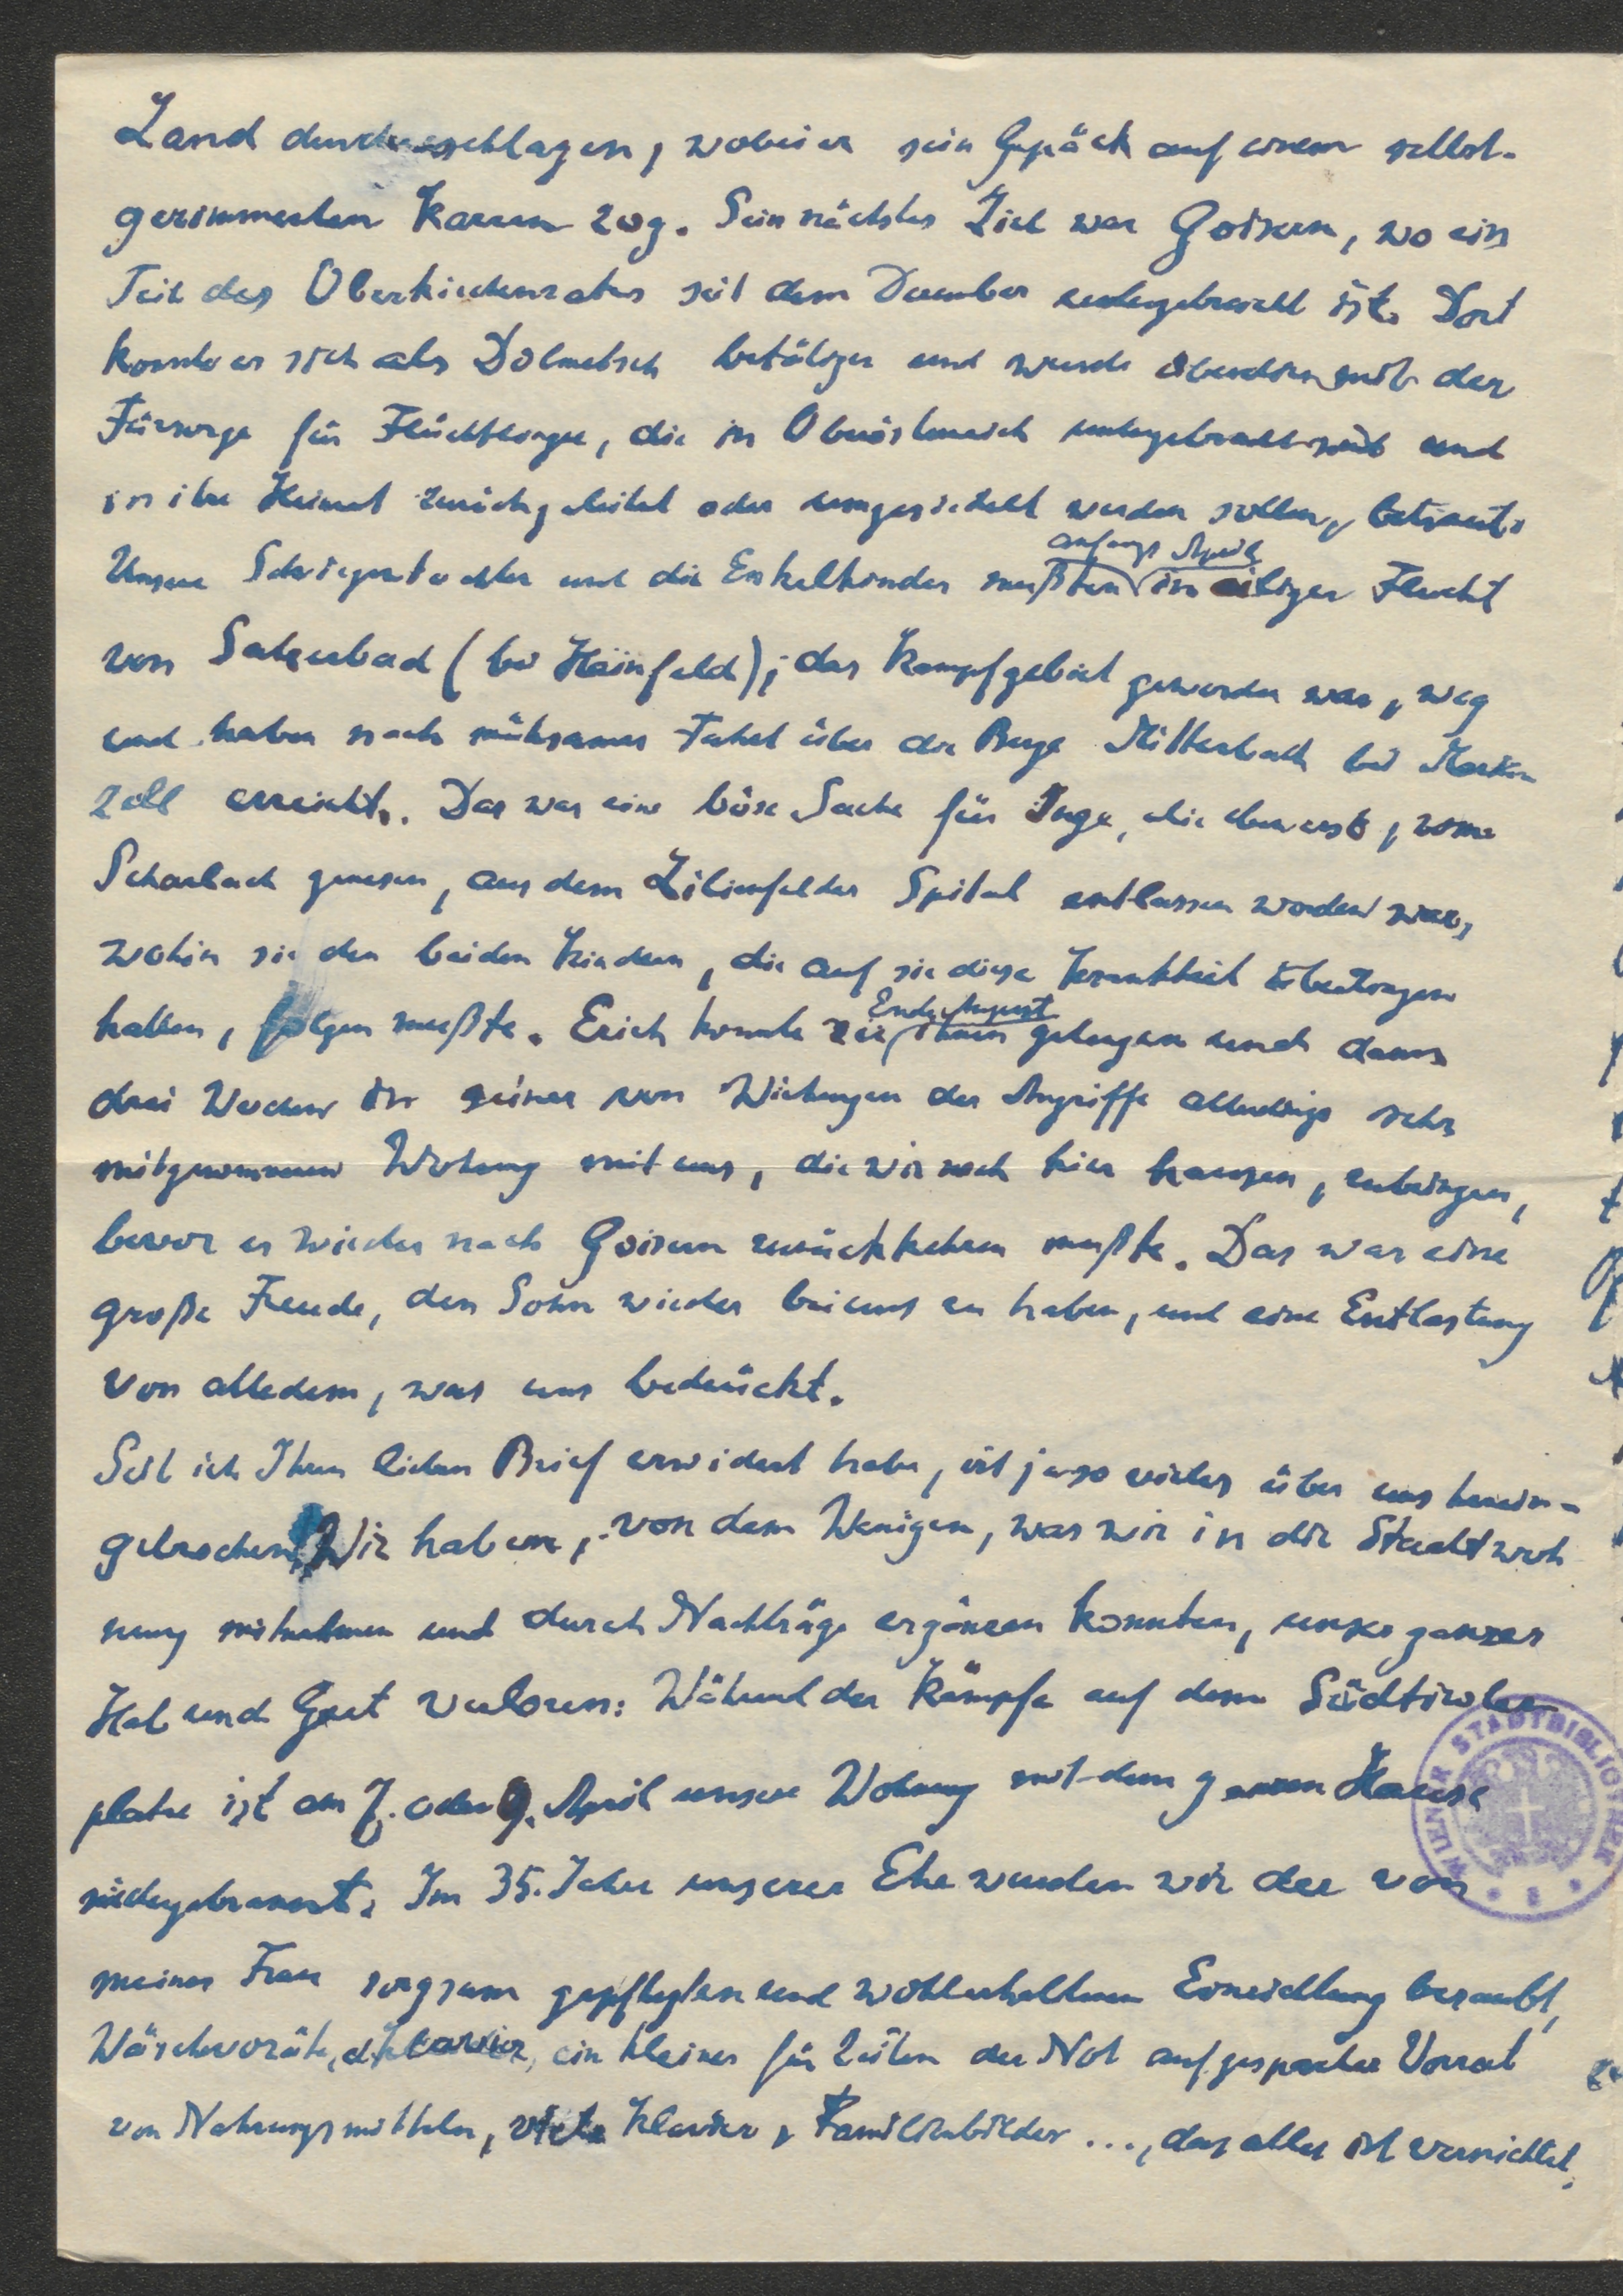 Land durchschlagen, wobei er sein Gepäck auf einem selbst-
gezimmerten Karren zog. Sein nächstes Ziel war Goisern, wo ein
Teil des Oberkirchenrates seit dem Dezember untergebracht ist. Dort
konnte er sich als Dolmetsch betätigen und wurde überdies mit der
Fürsorge für Flüchtlinge, die in Oberösterreich untergebracht sind und
in ihre Heimat zurückgeleitet oder umgesiedelt werden sollen, betraut.
Unsere Schwiegertochter und die Enkelkinder mußten anfangs April in eiliger Flucht
von Salzerbad (bei Hainfeld), das Kampfgebiet geworden war, weg
und haben nach mühsamer Fahrt über die Berge Mitterbach bei Maria
Zell erreicht. Das war eine böse Sache für Inge, die eben erst, vom
Scharlach genesen, aus dem Lilienfelder Spital entlassen worden war,
wohin sie den beiden Kindern, die auf sie diese Krankheit übertragen
hatten, folgen mußte. Erich konnte Ende August zu ihnen gelangen und dann
drei Wochen in seiner von Wirkungen der Angriffe allerdings sehr
mitgenommenen Wohnung mit uns, die wir noch hier hausen, verbringen,
bevor er wieder nach Goisern zurückkehren mußte. Das war eine
große Freude, den Sohn wieder bei uns zu haben, und eine Entlastung
von alledem, was uns bedrückt.
Seit ich Ihren lieben Brief erwidert habe, ist ja so vieles über uns herein-
gebrochen. Wir haben, von dem Wenigen, was wir in die Stadtwoh
nung mitnahmen und durch Nachträge ergänzen konnten, unser ganzes
Hab und Gut verloren: Während der Kämpfe auf dem Südtiroler
platze ist am 7. oder 9. April unsere Wohnung mit dem ganzen Hause
niedergebrannt. Im 35. Jahre unserer Ehe wurden wir der von
meiner Frau sorgsam gepflegten und wohlerhaltenen Einrichtung beraubt,
Wäschevoräte, ein kleiner für Zeiten der Not aufgesparter Vorrat
von Nahrungsmitteln, viele Kleider, Familienbilder ..., das alles ist vernichtet,
WIENER STADTBIBLIOTHEK